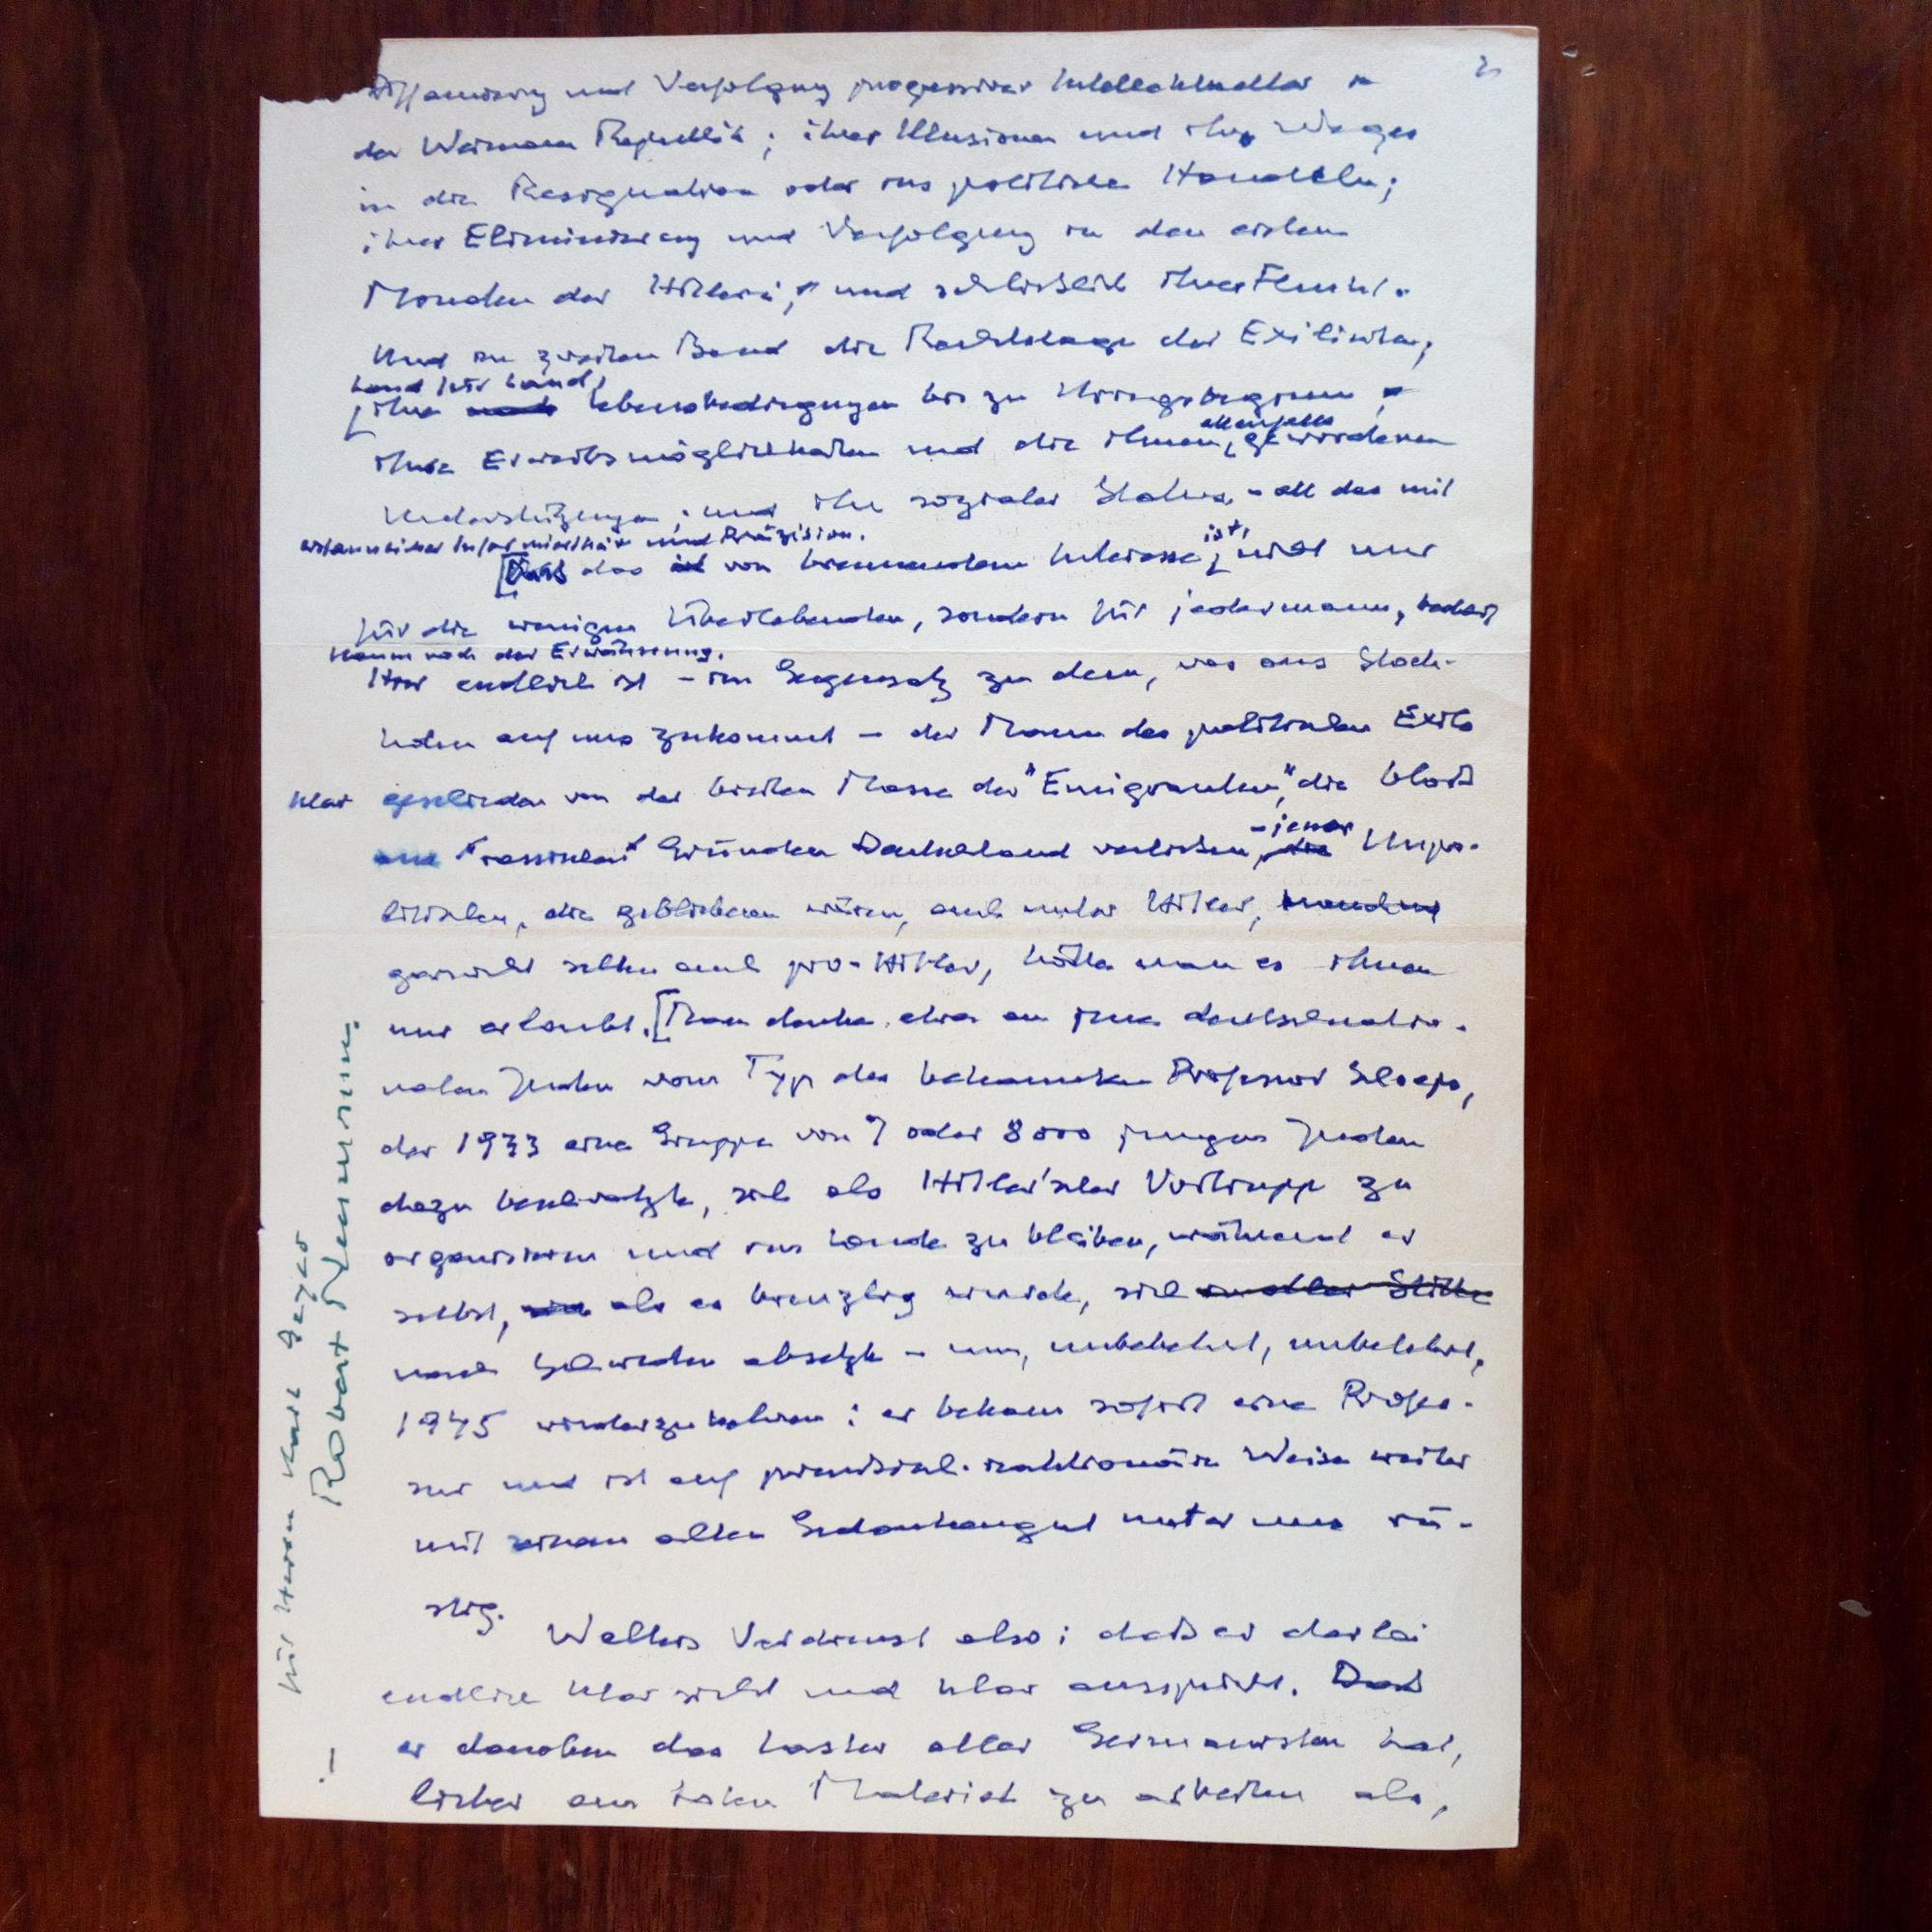 2
Diffamierung und Verfolgung progressiver Intellektueller in
der Weimarer Republik; ihrer Illusionen und ihres Weges
in die Resignation oder ins politische Handeln;
ihrer Eliminierung und Verfolgung in den ersten
Monaten der Hitlerei, und schließlich ihrer Flucht.
Und im zweiten Band die Rechtslage der Exilierten,
Land für Land,
ihre Lebensbedingungen bis zu Kriegsbeginn,
allenfalls
ihre Erwerbsmöglichkeiten und die ihnen gewordenen
Unterstützungen; und ihr sozialer Status, - all das mit
erstaunlicher Informiertheit und Präzision.
ist,
Daß das von brennendem Interesse nicht nur
für die wenigen Überlebenden, sondern für jedermann, bedarf
kaum noch der Erwähnung.
Hier endlich ist – im Gegensatz zu dem, was aus Stock-
holm auf uns zukommt – der Mann des politischen Exils
klar geschieden von der breiten Masse der "Emigranten", die bloß
aus "rassischen" Gründen Deutschland verließen, - jener Unpo-
litischen, die geblieben wären, auch unter Hitler,
garnicht selten auch pro-Hitler, hätte man es ihnen
nur erlaubt. [Man denke etwa an jene deutschnatio-
nalen Juden vom Typ des bekannten Professor Schoeps,
der 1933 eine Gruppe von 7 oder 8000 jungen Juden
dazu beschwatzte, sich als Hitler'scher Vortrupp zu
organisieren und im Lande zu bleiben, während er
selbst, als es brenzlig wurde, sich in aller Stille
nach Schweden absetzte – um, unbekehrt, unbelehrt,
1945 wiederzukehren: er bekam sofort eine Profes-
sur und ist auf preussisch-reaktionäre Weise weiter
mit seinem alten Gedankengut unter uns rü-
stig.
Walters Verdienst also: daß er derlei
endlich klar sieht und klar ausspricht. Daß
er daneben das Laster aller Germanisten hat,
lieber am toten Material zu arbeiten als,
Für Herrn Karl Geyer
Robert Neumann
!